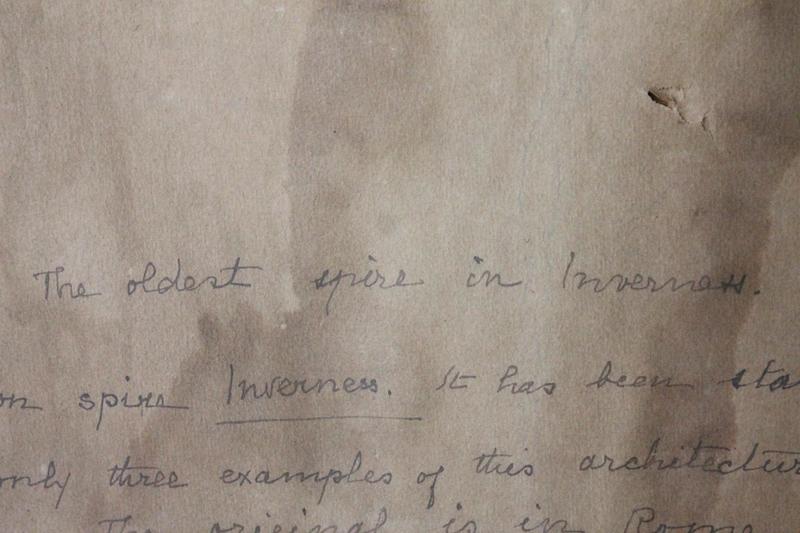 The oldest spire in Inverness.
on spire Inverness. It has been sta
only three examples of this architectur
The original is in Rome